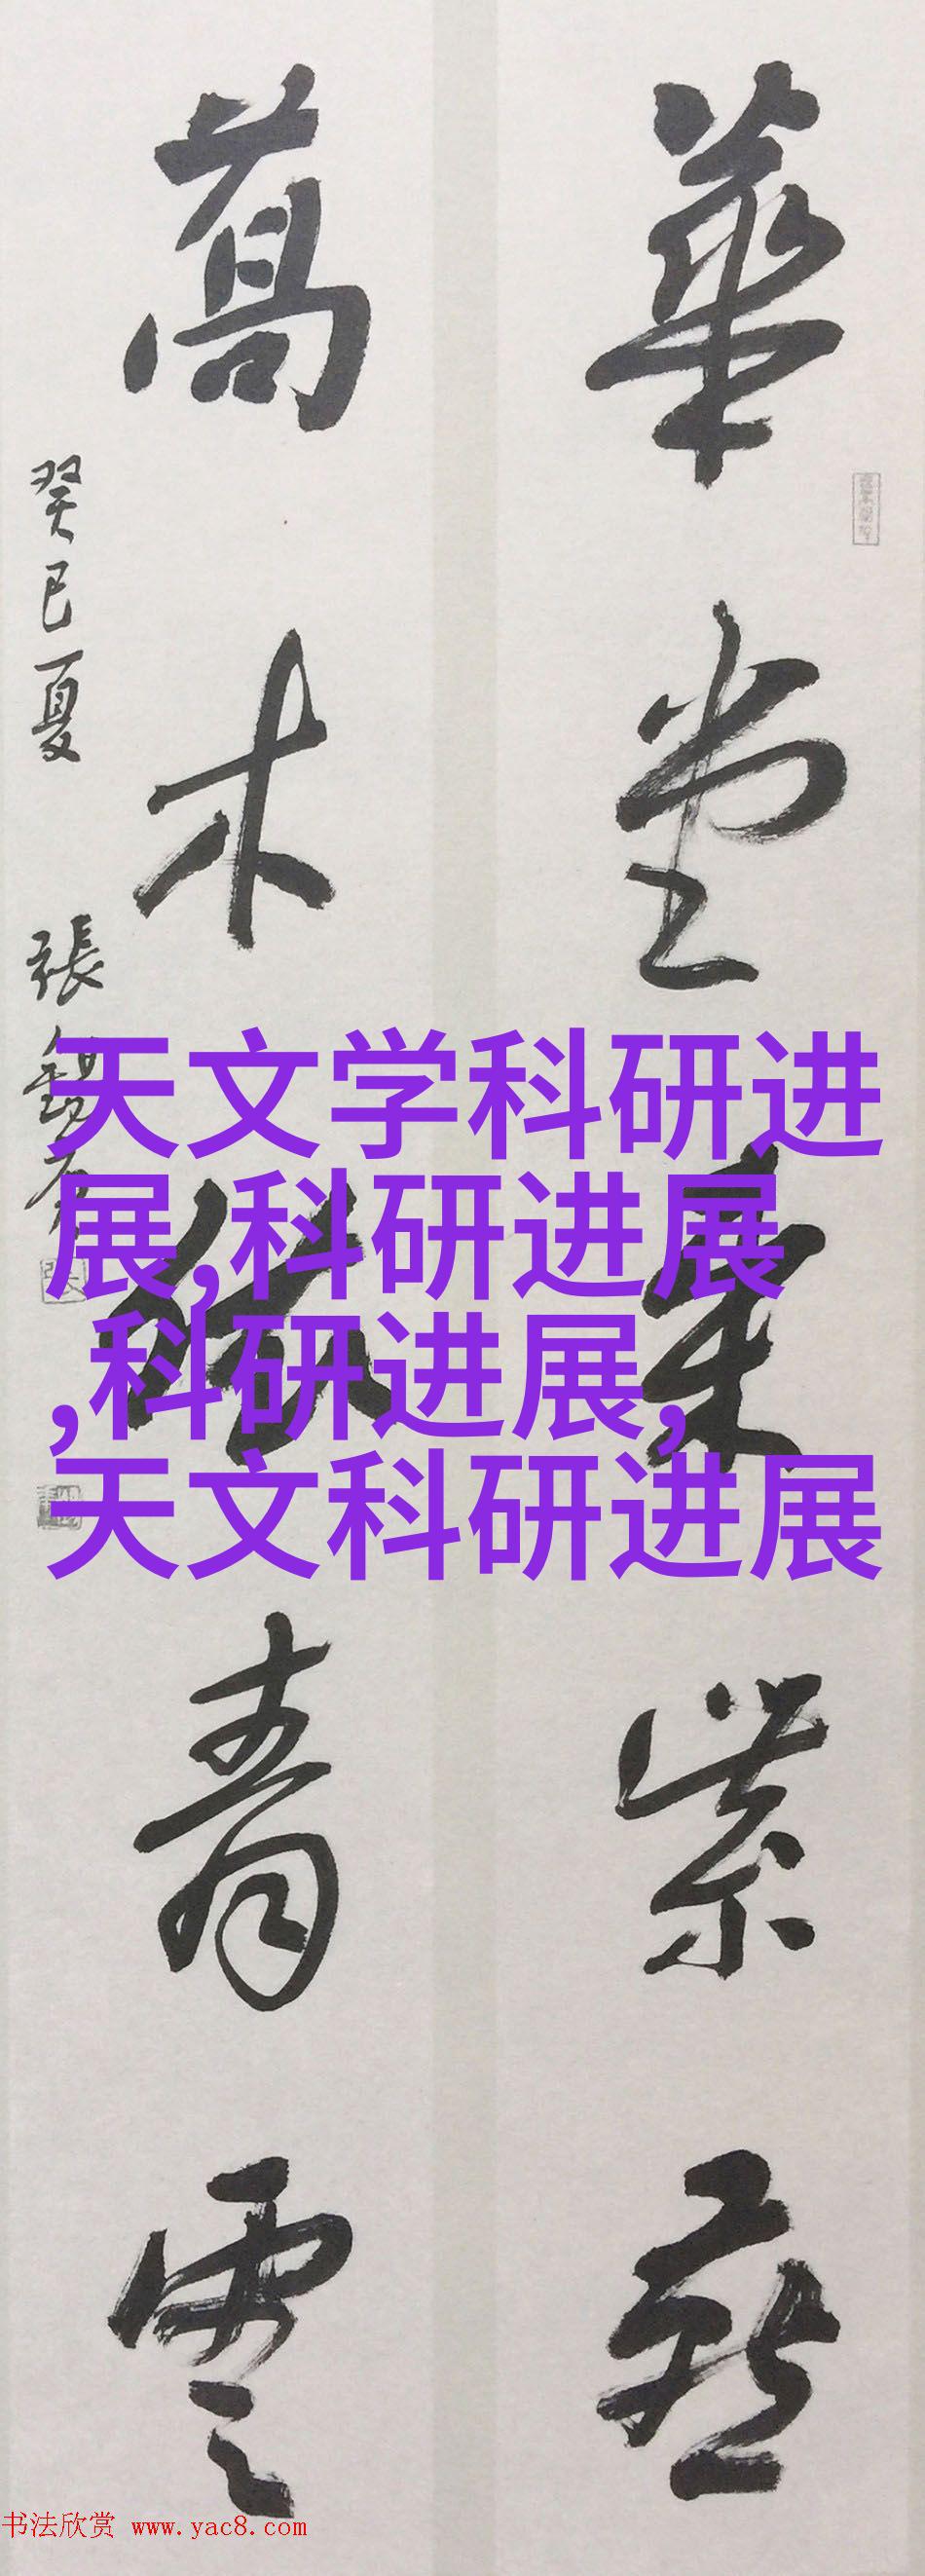 華堂来紫燕
萬木青雲
癸巳夏 張錫庚
天文学科研进
展,科研进展
,科研进展,
天文科研进展
书法欣赏 www.yac8.com